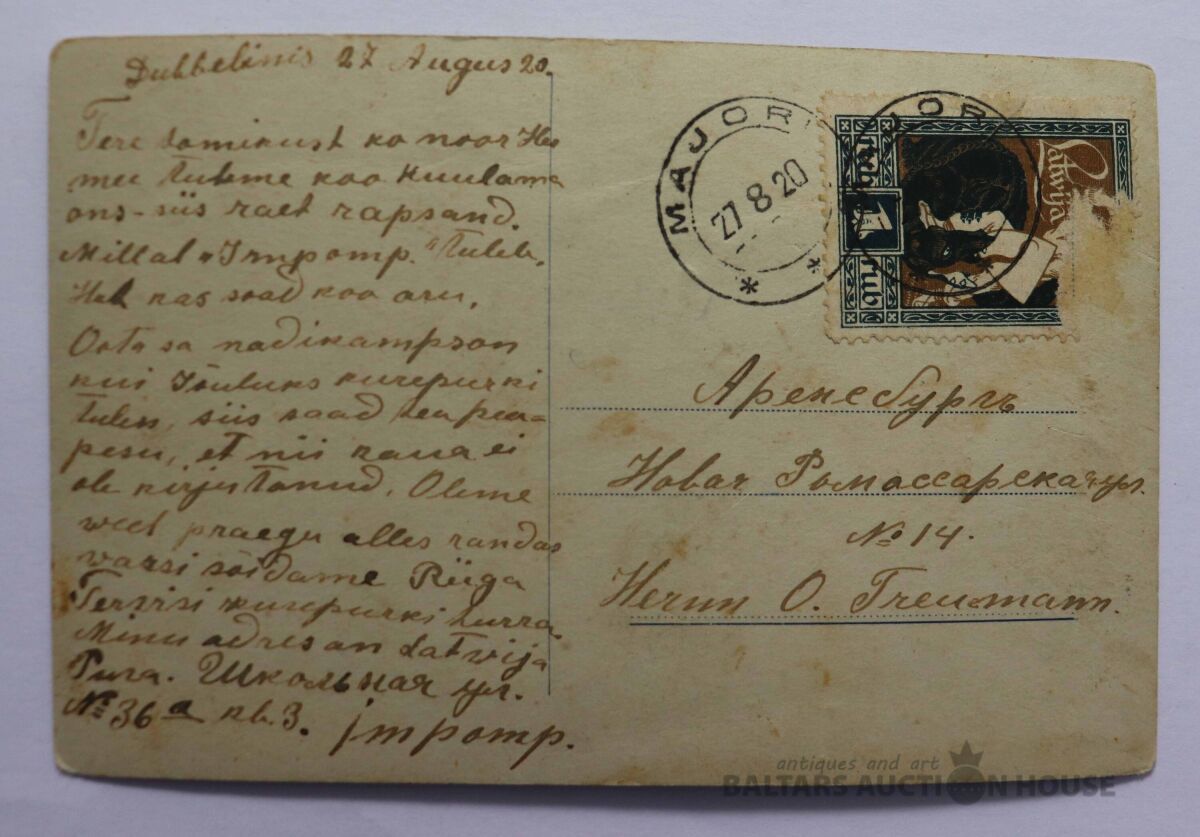 Dubbelinis 27 Augus 20.
Tere hommikust ka noor Her
meie tuleme koo Kuulama
ons-siis raet rapsand.
Millal "Impomp." tuleb,
Hak kas saad koo aru,
Oota sa nadikampson
kui Jõuluks kurepurki
tulen, siis saad hea pea-
pesu, et nii kaua ei
ole kirjutanud. Oleme
weel praegu alles randas
warsi sõidame Riiga
Terwisi kurepurki hurra.
Minu adres on Latwija
Рига. Школьная ул.
№ 36 a кв. 3. jmpomp.
MAJORI
27 8 20
MAJORI
Latwija
1
rub
rub
Аренсбургъ
Новая Ромассарская ул.
№ 14.
Herrn O. Treumann.
antiques and art
BALTARS AUCTION HOUSE